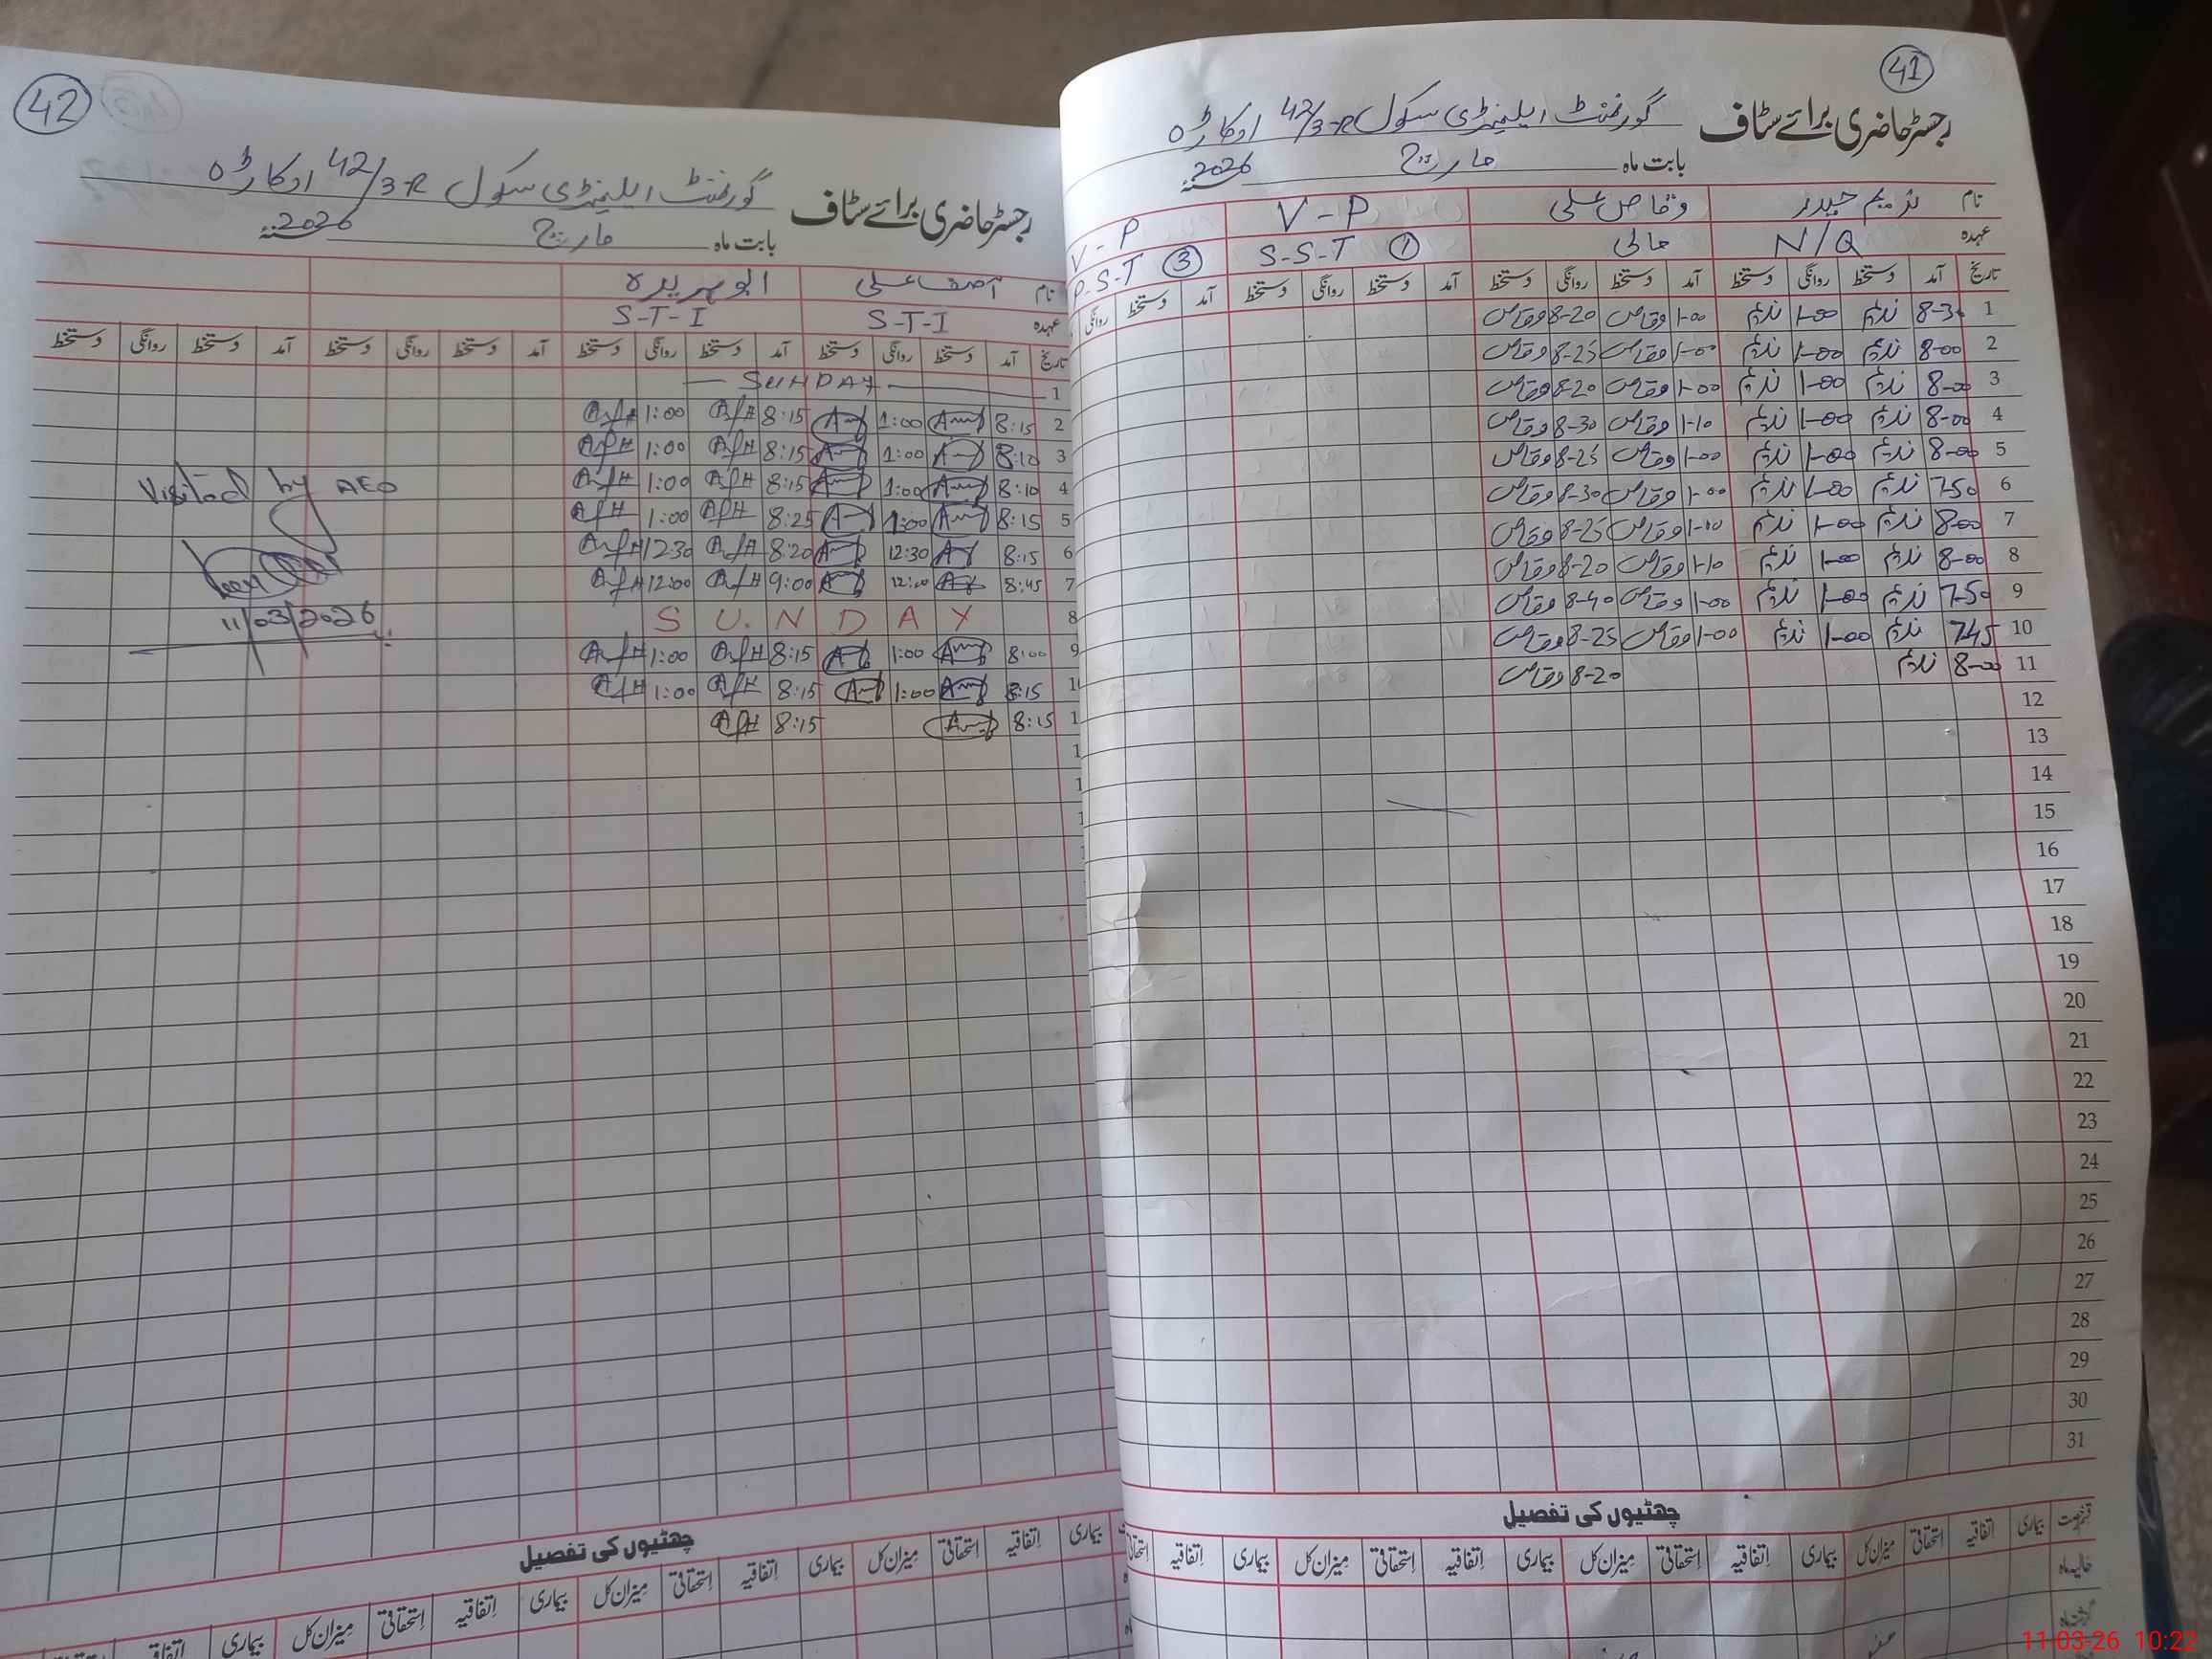 41
رجسٹر حاضری برائے سٹاف گورنمنٹ ایلیمنٹری سکول 42/3-R اوکاڑہ
بابت ماہ مارچ 2026
نام ندیم حیدر وقاص علی V-P V-P
عہدہ N/Q مالی S-S-T ① P-S-T ③
تاریخ آمد دستخط روانگی دستخط آمد دستخط روانگی دستخط آمد دستخط روانگی دستخط آمد دستخط روانگی
1 8-30 ندیم 1-00 ندیم 1-00 وقاص 8-20 وقاص
2 8-00 ندیم 1-00 ندیم 1-00 وقاص 8-25 وقاص
3 8-00 ندیم 1-00 ندیم 1-00 وقاص 8-20 وقاص
4 8-00 ندیم 1-00 ندیم 1-10 وقاص 8-30 وقاص
5 8-00 ندیم 1-00 ندیم 1-00 وقاص 8-25 وقاص
6 7-50 ندیم 1-00 ندیم 1-00 وقاص 8-30 وقاص
7 8-00 ندیم 1-00 ندیم 1-10 وقاص 8-25 وقاص
8 8-00 ندیم 1-00 ندیم 1-10 وقاص 8-20 وقاص
9 7-50 ندیم 1-00 ندیم 1-00 وقاص 8-40 وقاص
10 7-45 ندیم 1-00 ندیم 1-00 وقاص 8-25 وقاص
11 8-00 ندیم 8-20 وقاص
12
13
14
15
16
17
18
19
20
21
22
23
24
25
26
27
28
29
30
31
چھٹیوں کی تفصیل
بیماری اتفاقیہ استحقاقی میزان کل بیماری اتفاقیہ استحقاقی میزان کل بیماری اتفاقیہ استحقاقی میزان کل بیماری اتفاقیہ استحقاقی
حالیہ ماہ
42
رجسٹر حاضری برائے سٹاف گورنمنٹ ایلیمنٹری سکول 42/3-R اوکاڑہ
بابت ماہ مارچ 2026
نام آصف علی ابو ہریرہ
عہدہ S-T-I S-T-I
تاریخ آمد دستخط روانگی دستخط آمد دستخط روانگی دستخط آمد دستخط روانگی دستخط آمد دستخط روانگی دستخط
1 SUNDAY
2 8:15 1:00 8:15 1:00
3 8:10 1:00 8:15 1:00
4 8:10 1:00 8:15 1:00
5 8:15 1:00 8:25 1:00
6 8:15 12:30 8:20 12:30
7 8:45 12:00 9:00 12:00
8 SUNDAY
9 8:00 1:00 8:15 1:00
1 8:15 1:00 8:15 1:00
1 8:15 8:15
Visited by AEO
11/03/2026
چھٹیوں کی تفصیل
بیماری اتفاقیہ استحقاقی میزان کل بیماری اتفاقیہ استحقاقی میزان کل بیماری اتفاقیہ استحقاقی میزان کل بیماری اتفاقیہ
11-03-26 10:22